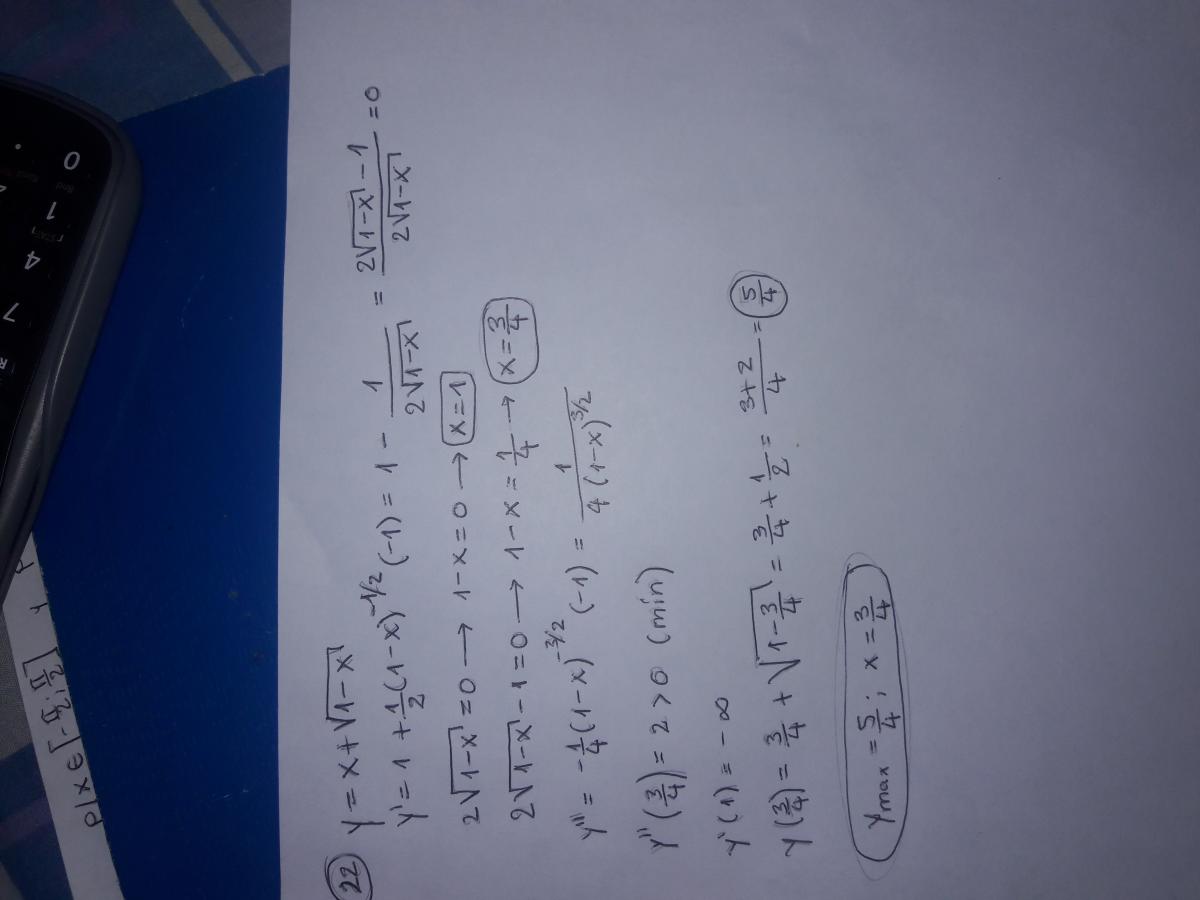 22 y = x + √(1-x)
y' = 1 + 1/2 (1-x)^(-1/2) (-1) = 1 - 1/(2√(1-x)) = (2√(1-x) - 1)/(2√(1-x)) = 0
2√(1-x) = 0 → 1-x = 0 → x = 1
2√(1-x) - 1 = 0 → 1-x = 1/4 → x = 3/4
y'' = -1/4 (1-x)^(-3/2) (-1) = 1/(4(1-x)^(3/2))
y'' (3/4) = 2 > 0 (min)
y' (1) = -∞
y (3/4) = 3/4 + √(1 - 3/4) = 3/4 + 1/2 = (3+2)/4 = 5/4
y max = 5/4 ; x = 3/4
p/x ∈ [-π/2 ; π/2]
0
1
4
7